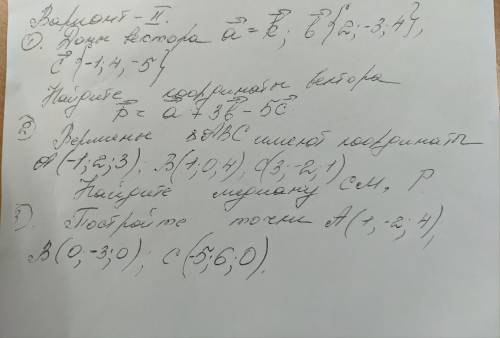 Вариант - II.
①. Даны вектора a⃗ = k⃗; b⃗ {2; -3; 4},
c⃗ {-1; 4; -5}
Найдите координаты вектора
p⃗ = a⃗ + 3b⃗ - 5c⃗
②. Вершины ΔABC имеют координаты
A(-1; 2; 3); B(1; 0; 4), C(3; -2; 1)
Найдите медиану CM, P
3). Постройте точки A(1, -2; 4),
B(0; -3; 0); C(-5; 6; 0).